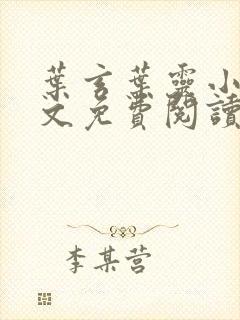 葉言葉靈小
文免費閱讀
李某营